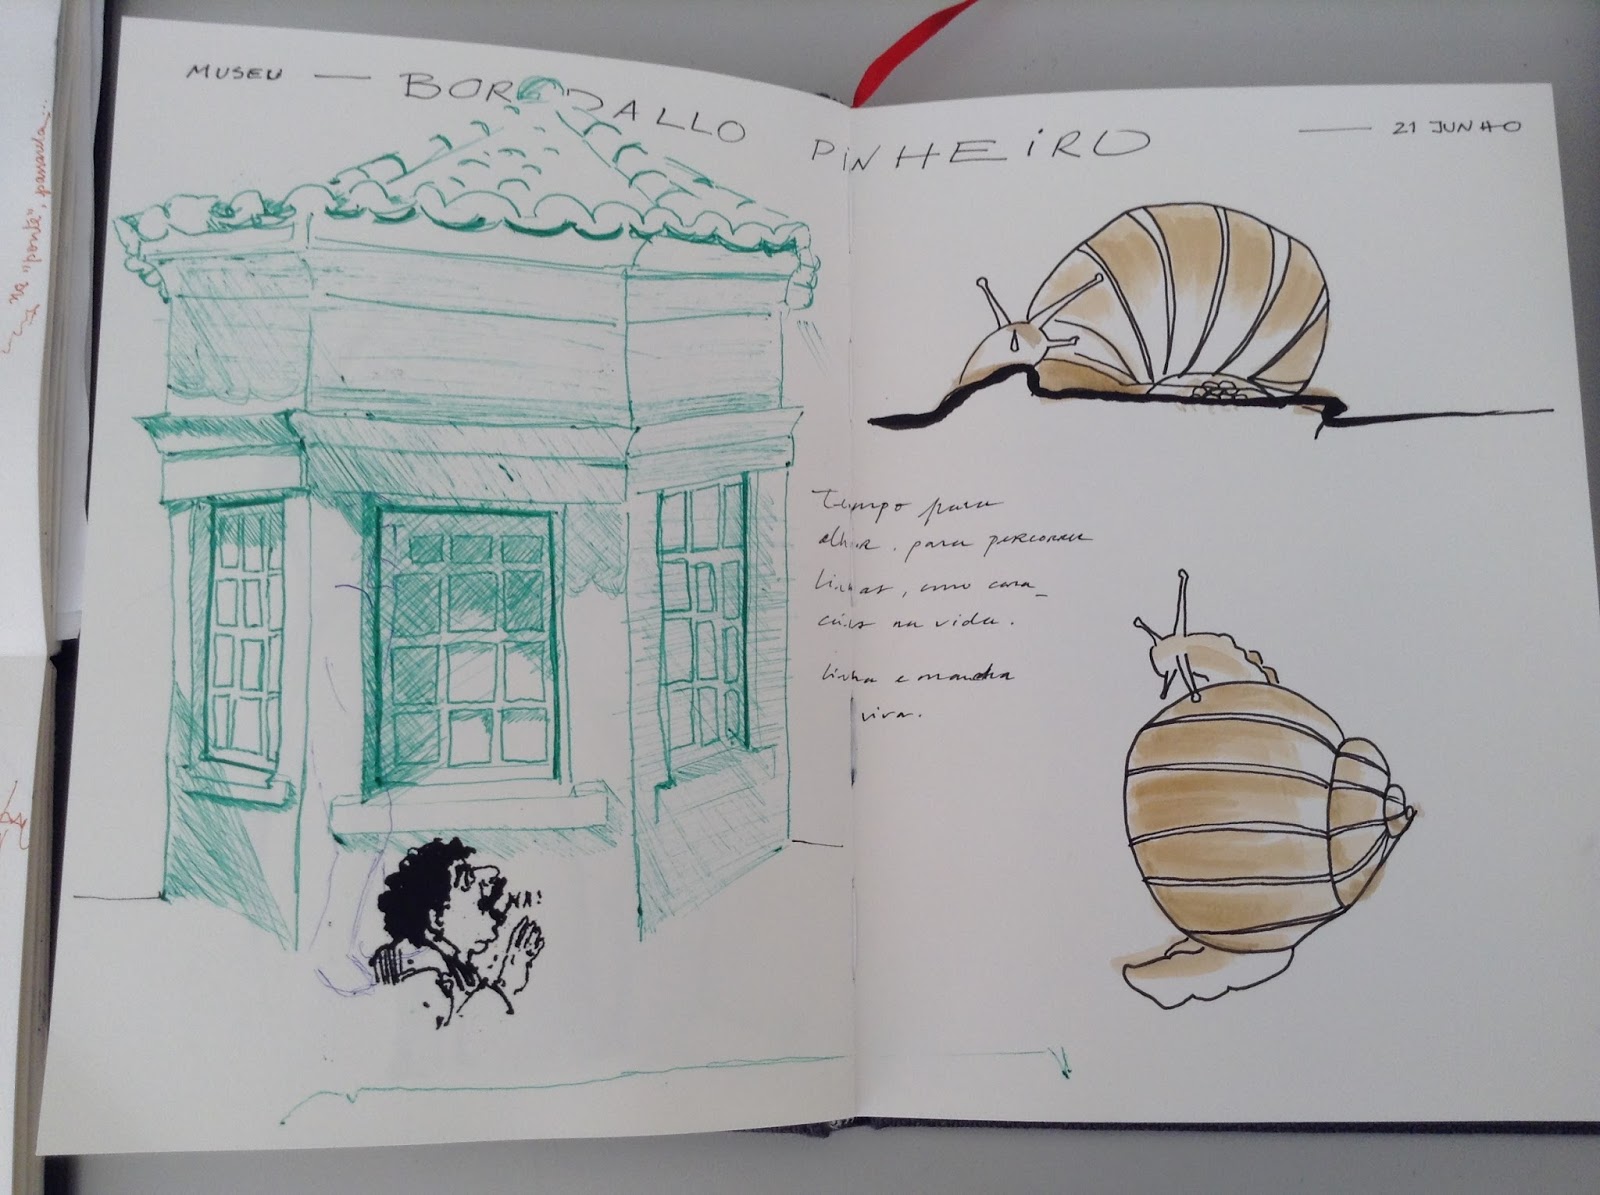 MUSEU — BORDALLO PINHEIRO — 21 JUNHO
Tempo para
olhar, para percorrer
linhas, como cara_
cóis na vida.
linha e mancha
viva.
HA!
na "ponte", passarela...